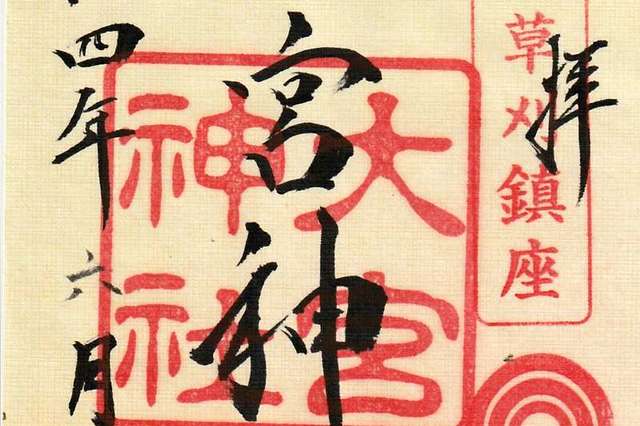 拝
草刈鎮座
宮神
大宮
神社
四年六月